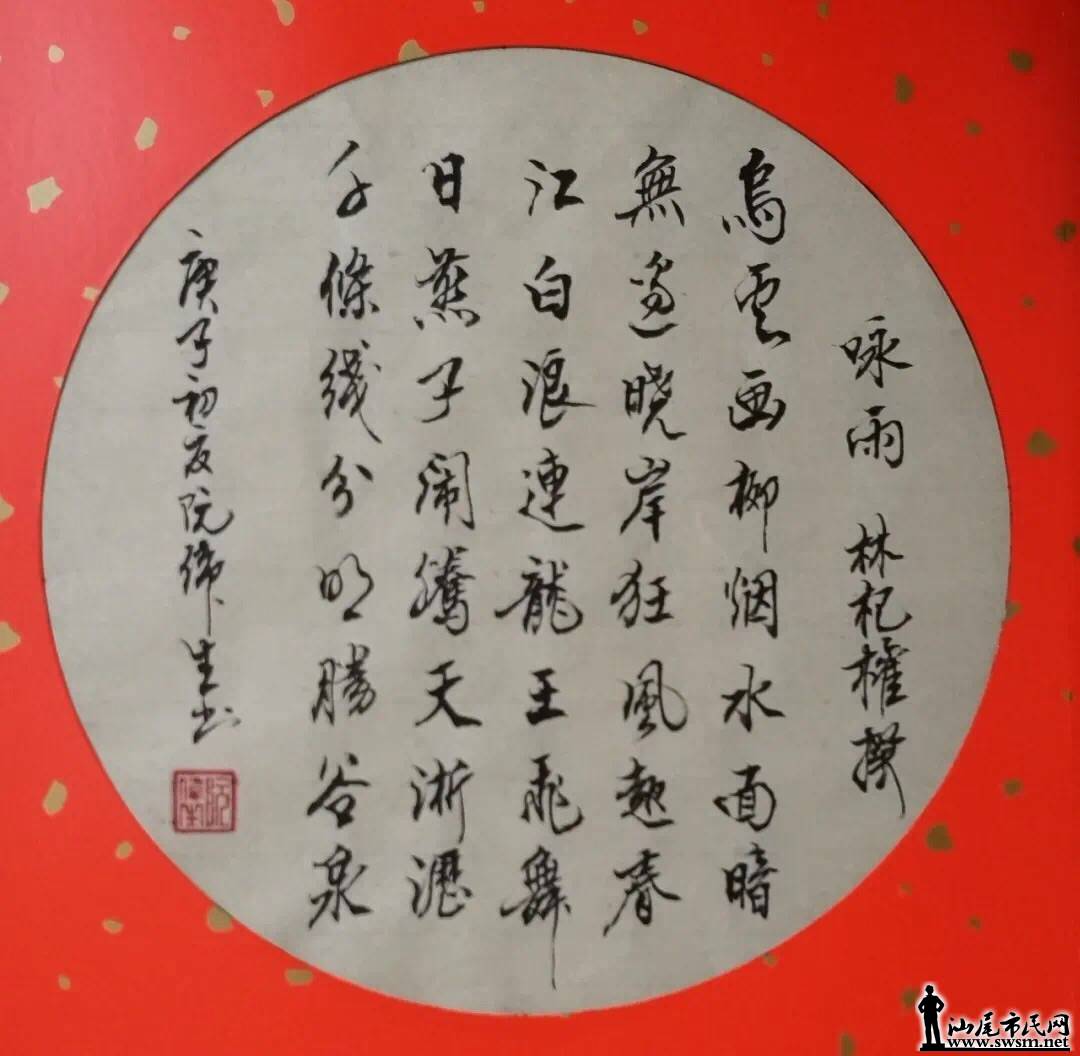 咏雨 林杞權撰
烏雲画柳烟水面暗
無邊晓岸狂風趣春
江白浪連龍王飛舞
日燕子闹騰天淅瀝
千條线分明勝谷泉
庚子初夏阮偉生书
汕尾市民网
www.swsm.net